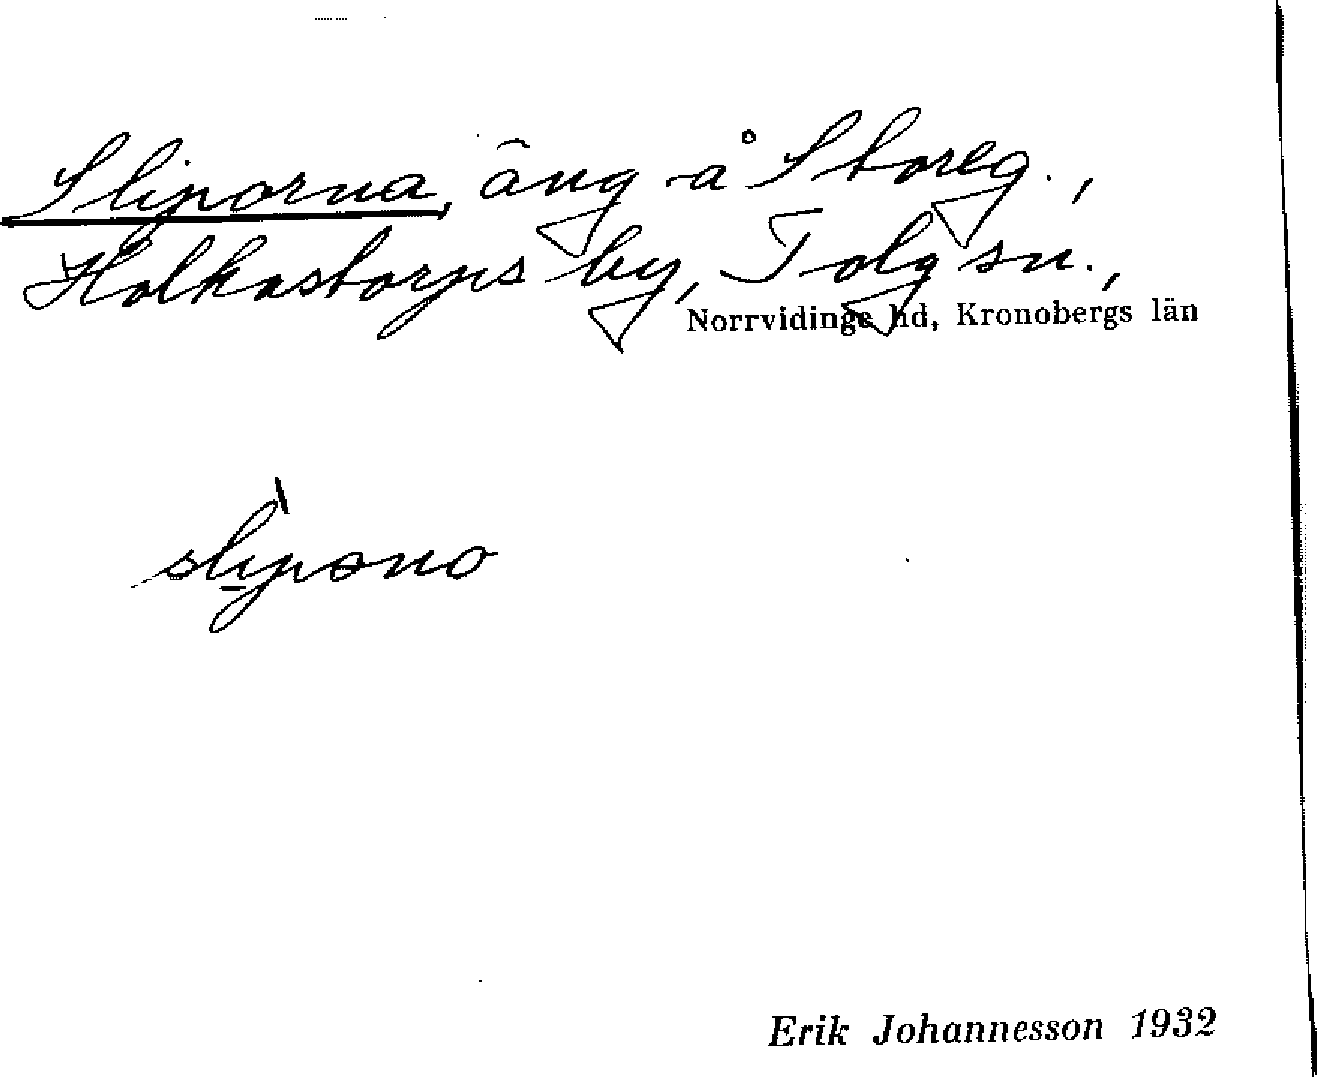 Sliporna, äng å Storeg.,
Holkastorps by, Tolg sn.,
Norrvidinge hd, Kronobergs län
slipono
Erik Johannesson 1932